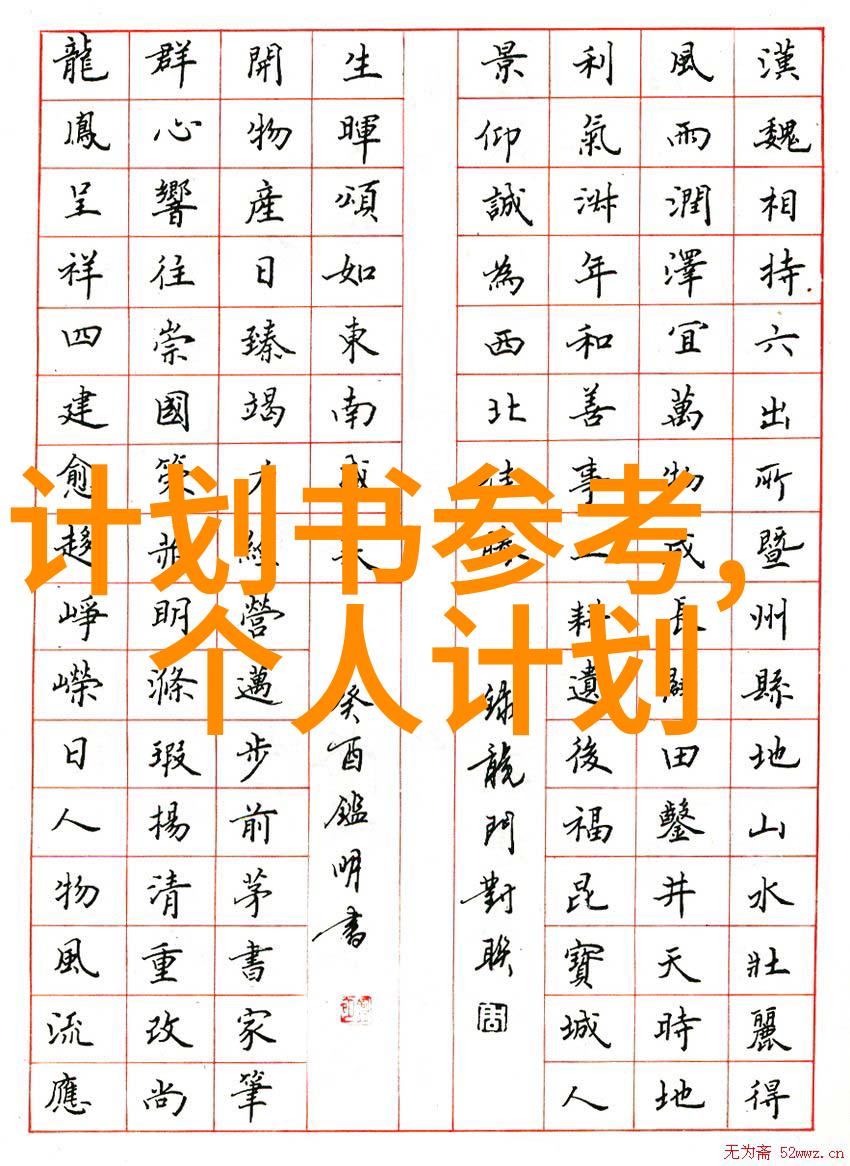 计划书参考,
个人计划
漢魏相持六出所暨州縣地山水壯麗得
風雨潤澤宜萬物成長田鑿井天時地
利氣年和善事耕遺後福昆寶城人
景仰誠為西北佳勝
錄龍門對聯
生暉頌如東南
癸酉鑑明書
開物產日臻竭力經營邁步前茅書家筆
群心響往崇國策亦明滌瑕揚清重改尚
龍鳳呈祥四建愈趍崢嶸日人物風流應
无为斋 52wwz.cn